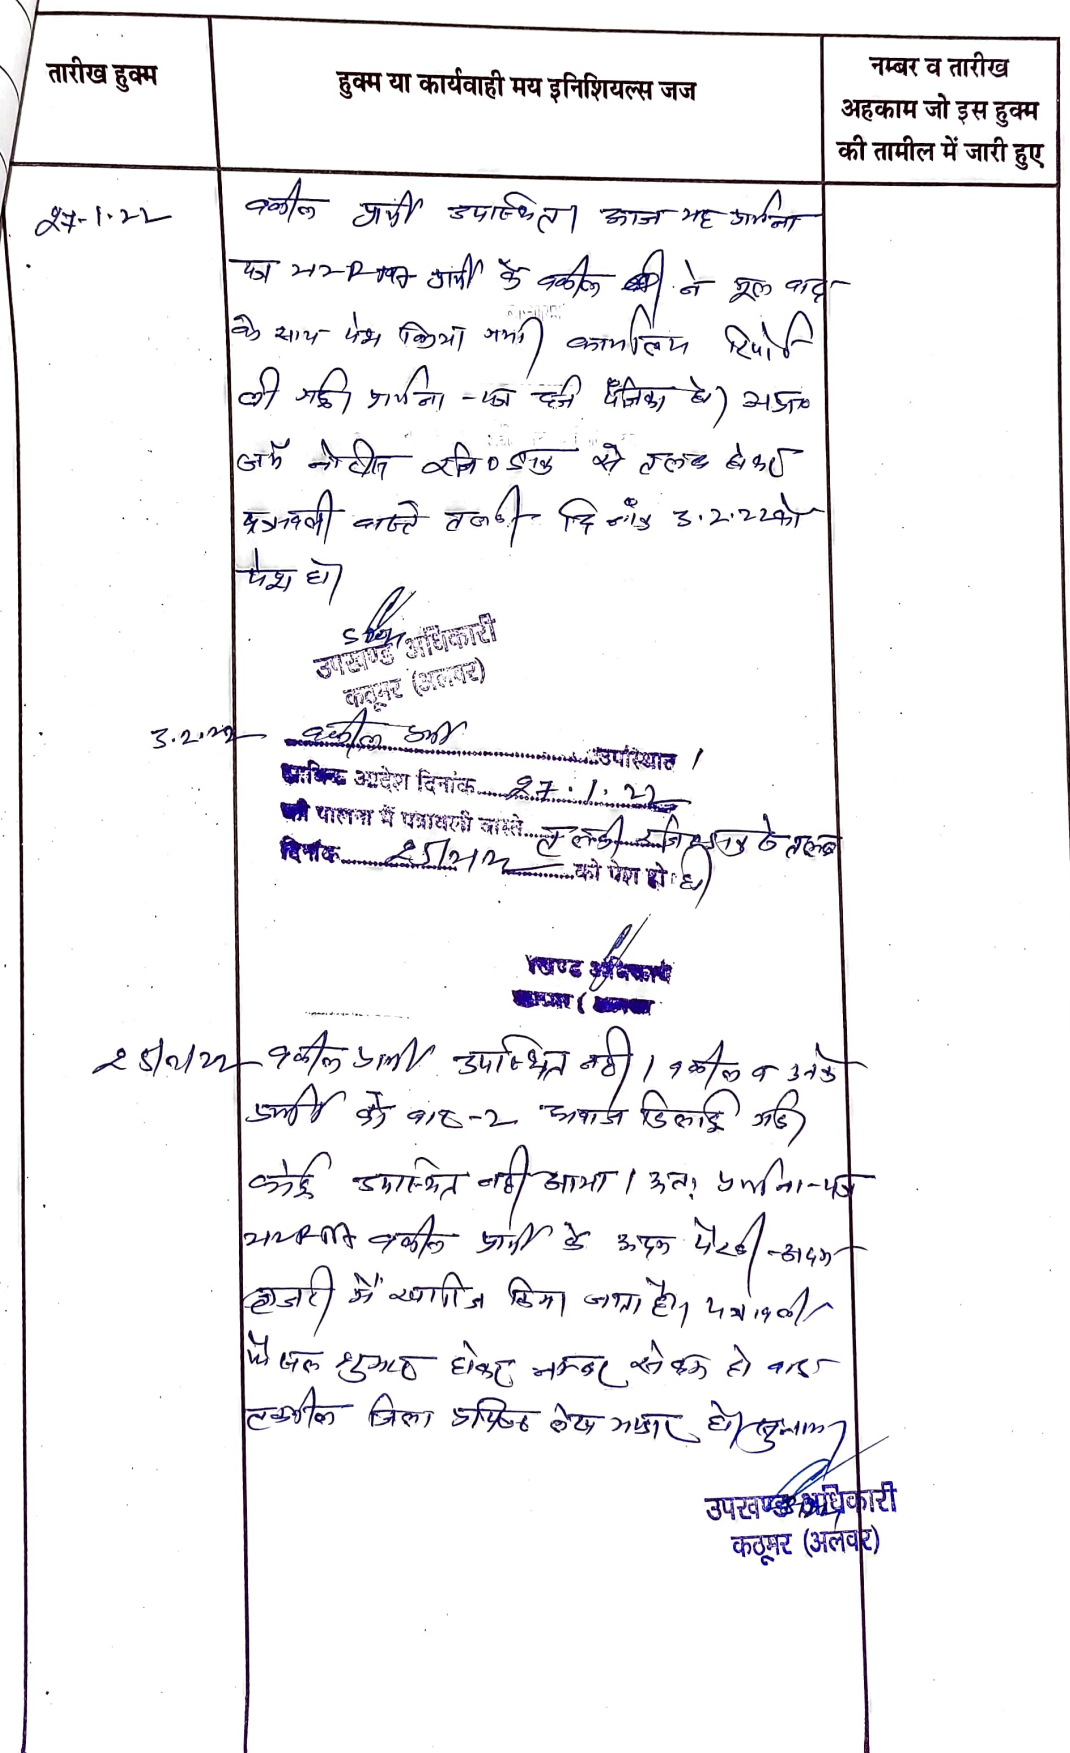 तारीख हुक्म
हुक्म या कार्यवाही मय इनिशियल्स जज
नम्बर व तारीख
अहकाम जो इस हुक्म
की तामील में जारी हुए
27-1-22
वकील प्रार्थी उपस्थित। आज यह प्रार्थना
पत्र प्रार्थी के वकील ने मूल वाद
के साथ पेश किया गया। कार्यालय रिपोर्ट
ली गई। प्रार्थना-पत्र दर्ज हो।
नोटिस रजि० डाक से तलब होकर
पत्रावली वास्ते तलबी दिनांक 3.2.22 को
पेश हो।
उपखण्ड अधिकारी
कठूमर (अलवर)
3.2.22
वकील प्रार्थी उपस्थित।
आदेश दिनांक 27.1.22
की पालना में पत्रावली वास्ते तलबी तलब
दिनांक 25/2/22 को पेश हो।
खण्ड अधिकारी
25/2/22
वकील प्रार्थी उपस्थित नहीं। वकील व उनके
प्रार्थी को बार-2 आवाज दिलाई गई।
कोई उपस्थित नहीं आया। अतः प्रार्थना-पत्र
वकील प्रार्थी के अदम पैरवी-अदम
हाजरी में खारिज किया जाता है। पत्रावली
फैसल शुमार होकर नम्बर से कम हो बाद
तकमील दाखिल लेख हो।
उपखण्ड अधिकारी
कठूमर (अलवर)